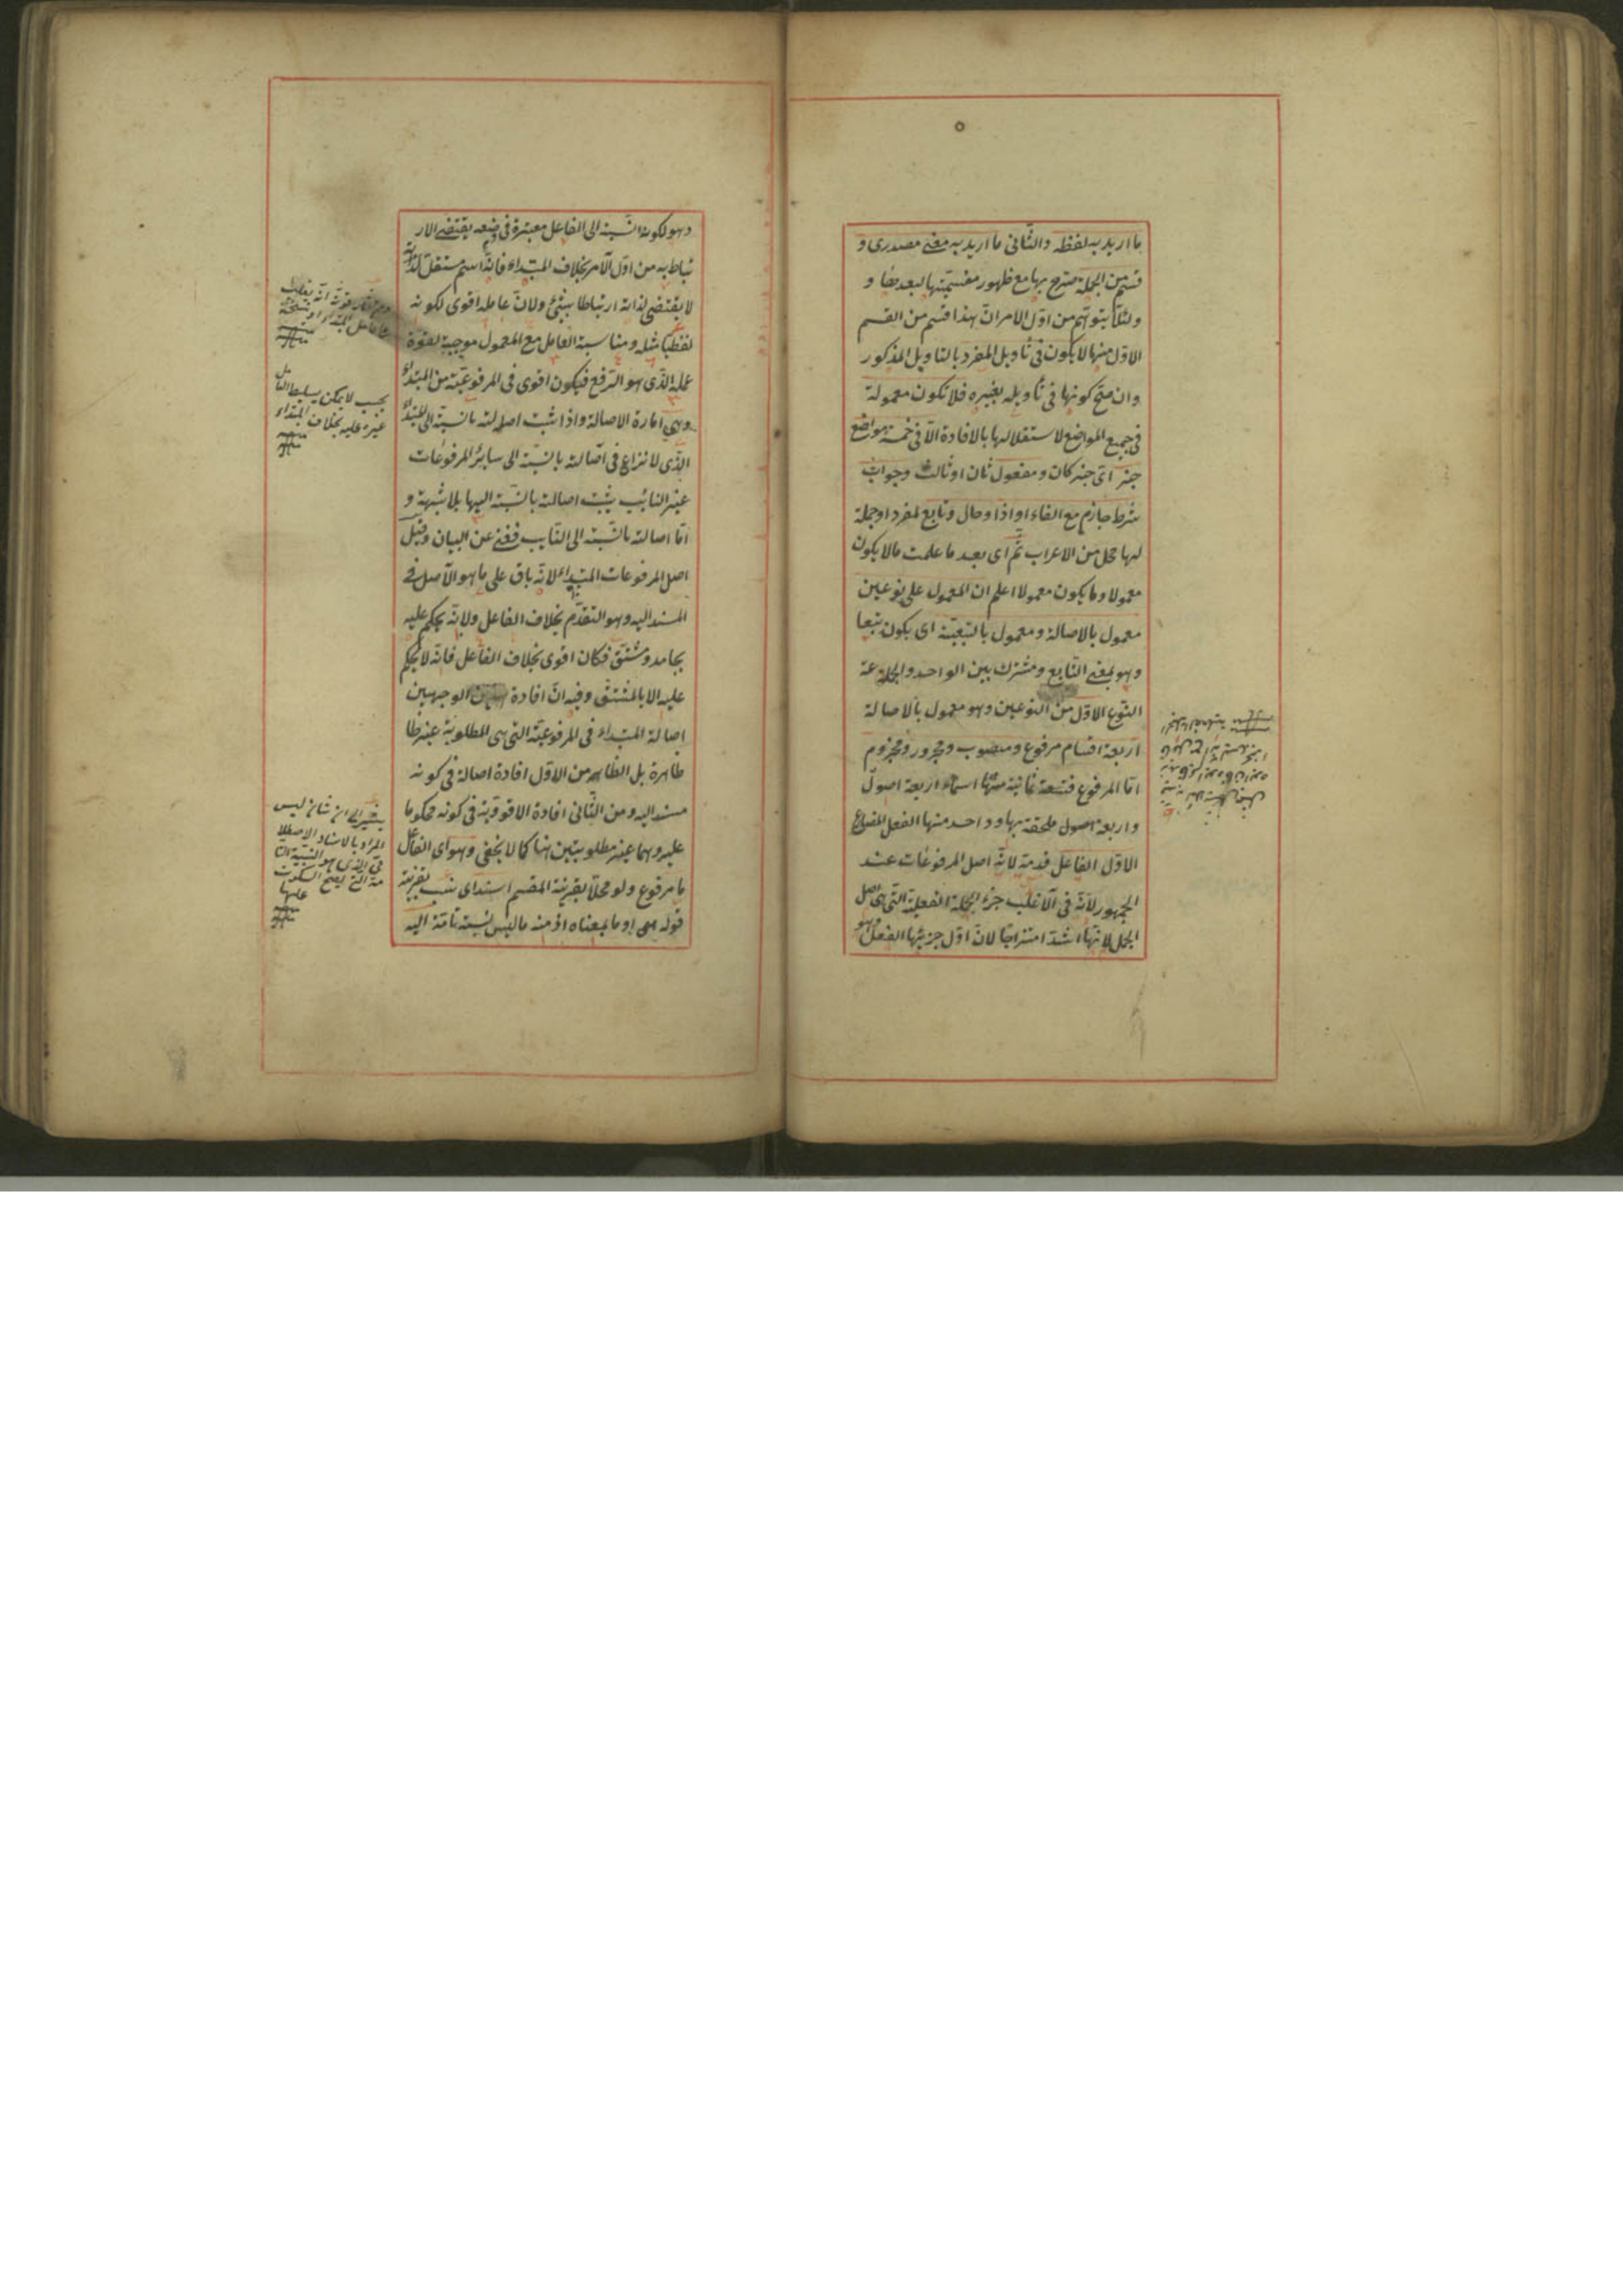 ما اريد به لفظه والثانى ما اريد به معنى مصدرى و
قسم من الجملة صرح بها مع ظهور مقسميتها لبعدها و
ولئلا يتوهم من اول الامر ان هذا قسم من القسم
الاول منها لا يكون فى تأويل المفرد بالتأويل المذكور
وان صح كونها فى تأويله بغيره فلا تكون معمولة
فى جميع المواضع لاستقلالها بالافادة الا فى خمسة مواضع
خبر اى خبر كان ومفعول ثان او ثالث وجواب
شرط جازم مع الفاء او اذا وحال وتابع لمفرد او جملة
لها محل من الاعراب ثم اى بعد ما علمت ما لا يكون
معمولا وما يكون معمولا اعلم ان المعمول على نوعين
معمول بالاصالة ومعمول بالتبعية اى بكون تبعا
وهو بمعنى التابع ومشترك بين الواحد والجماعة
النوع الاول من النوعين وهو معمول بالاصالة
اربعة اقسام مرفوع ومنصوب ومجرور ومجزوم
اما المرفوع فتسعة ثمانية منها اسماء اربعة اصول
واربعة اصول ملحقة بها وواحد منها الفعل المضارع
الاول الفاعل قدمه لانه اصل المرفوعات عند
الجمهور لانه فى الاغلب جزء الجملة الفعلية التى هى اصل
الجمل لانها اشد امتزاجا لان اول جزئيها الفعل وهو
وهو لكونه النسبة الى الفاعل معتبرة فى وضعه يقتضى الار
تباط به من اول الامر بخلاف المبتداء فانه اسم مستقل لذاته
لا يقتضى لذاته ارتباطا بشئ ولان عامله اقوى لكونه
لفظيا مثله ومناسبة العامل مع المعمول موجبة لقوة
عمله الذى هو الرفع فيكون اقوى فى المرفوعية من المبتداء
وهى امارة الاصالة واذا ثبت اصالته بالنسبة الى المبتداء
الذى لا نزاع فى اصالته بالنسبة الى سائر المرفوعات
غير النائب يثبت اصالته بالنسبة اليها بلا شبهة و
اما اصالته بالنسبة الى النايب فغنى عن البيان وقيل
اصل المرفوعات المبتداء لانه باق على ما هو الاصل فى
المسند اليه وهو التقدم بخلاف الفاعل ولانه يحكم عليه
بجامد ومشتق فكان اقوى بخلاف الفاعل فانه لا يحكم
عليه الا بالمشتق وفيه ان افادة هذين الوجهين
اصالة المبتداء فى المرفوعية التى هى المطلوبة غير ظا
ظاهرة بل الظاهر من الاول افادة اصالة فى كونه
مسندا اليه ومن الثانى افادة الاقووية فى كونه محكوما
عليه وهما غير مطلوبتين هنا كما لا يخفى وهو اى الفاعل
ما مرفوع ولو محلا بقرينة المقسم اسند اى نسب بقرينة
قوله او ما بمعناه اذ منه ما ليس نسبته تامة اليه
بحيث لا يمكن تسليط العامل
غيره عليه بخلاف المبتداء
يشير الى ان شأنه ليس
المراد بالاسناد الاصطلا
حى الذى هو النسبة التا
مة التى يصح السكوت
عليها